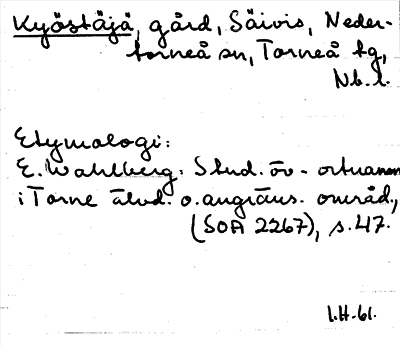 Kyöstäjä, gård, Säivis, Neder-
torneå sn, Torneå tg,
Nb. l.
Etymologi:
E. Wahlberg: Stud. öv. ortnamn
i Torne älvd. o. angräns. områd.,
(SOA 2267), s. 47.
I.H. 61.